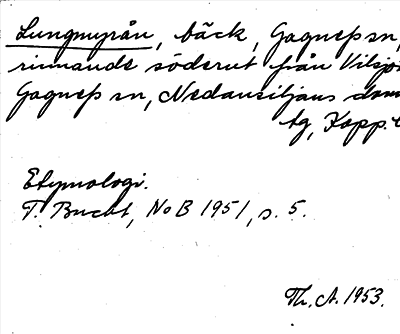 Lungmyrån, bäck, Gagnefs sn,
rinnande söderut från Vilsjö
Gagnefs sn, Nedansiljans dom
tg, Kopp.
Etymologi.
T. Bucht, NoB 1951, s. 5.
Th. A. 1953.